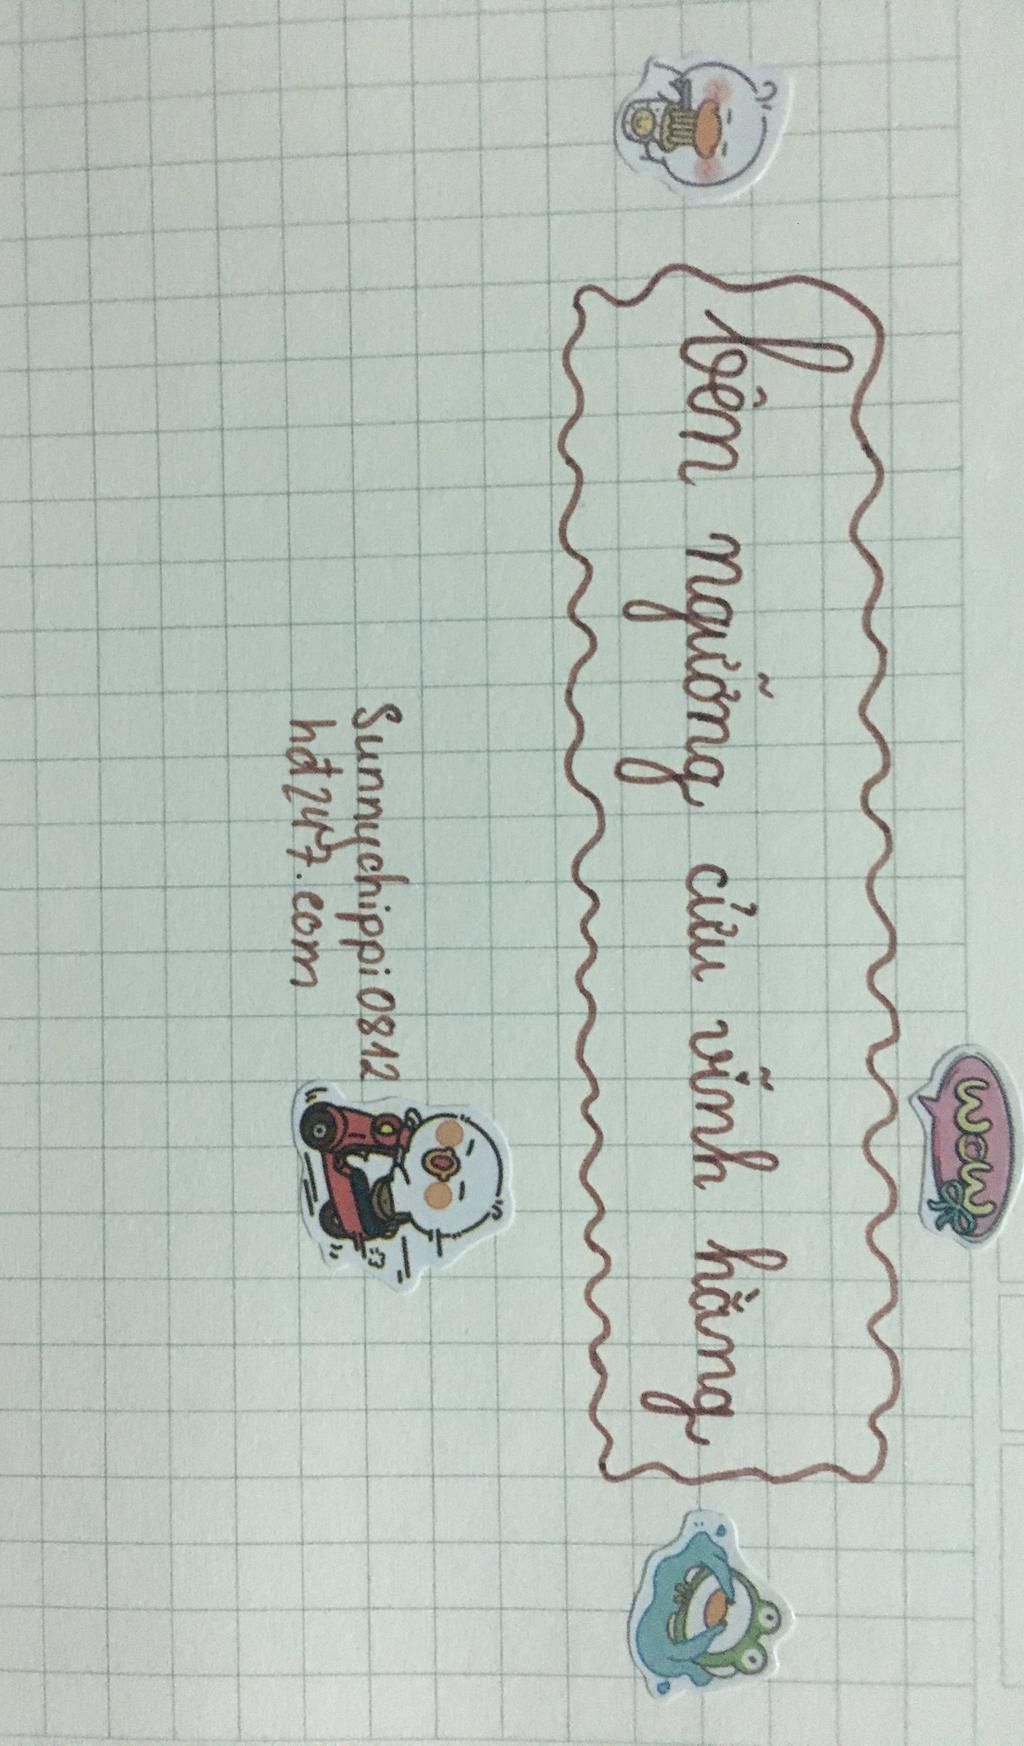 wow
bên ngưỡng cửu vĩnh hằng
Sunnychippi0812
hđ247.com